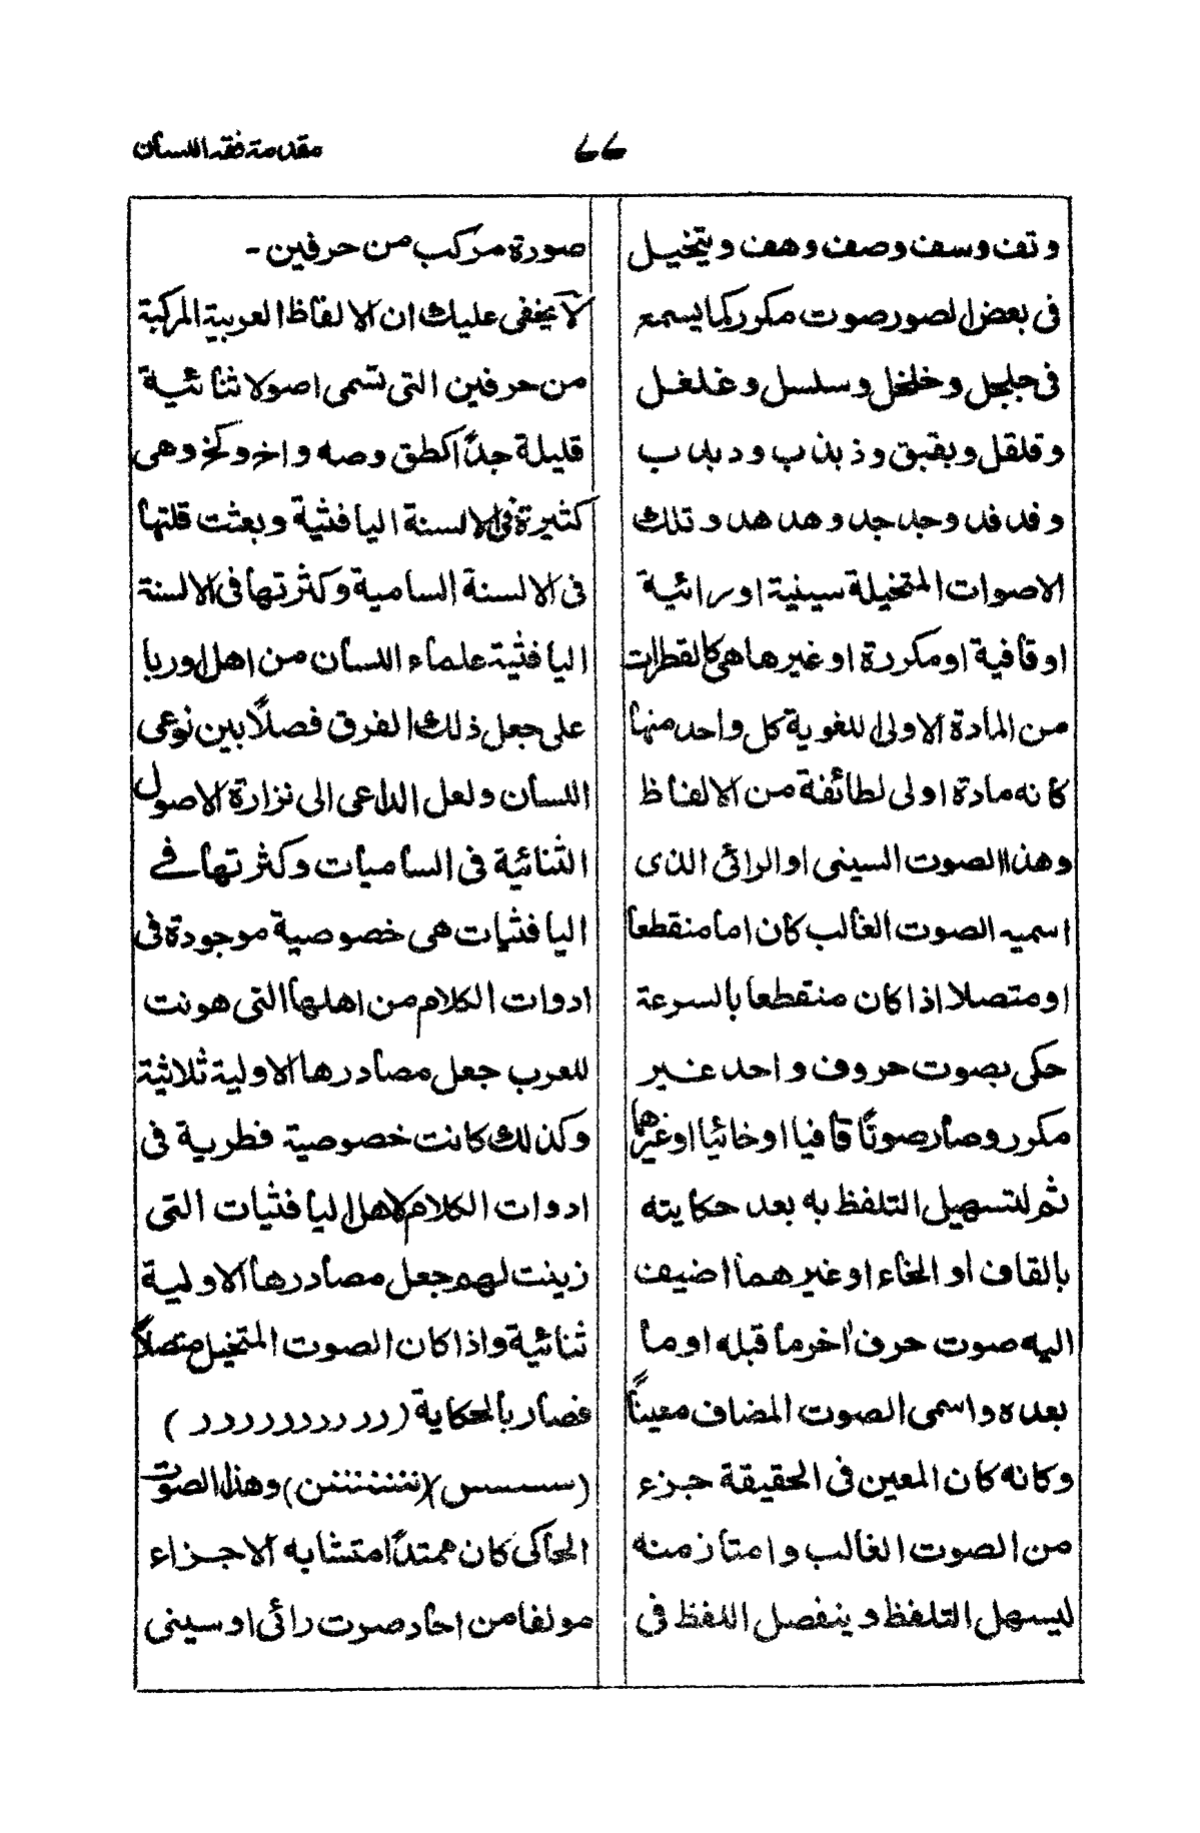 ٦٦
مقدمة فقه اللسان
و تف وسف وصف وهف ويتخيل
فى بعض الصور صوت مكرر كما يسمع
فى جلجل وخلخل وسلسل وغلغل
وقلقل وبقبق وذبذب ودبدب
وفدفد وجدجد وهدهد وتلك
الاصوات المتخيلة سينية او رائية
او قافية او مكررة او غيرها هى كالقطرات
من المادة الاولى للغوية كل واحد منها
كانه مادة اولى لطائفة من الالفاظ
وهذا الصوت السينى او الرائى الذى
اسميه الصوت الغالب كان اما منقطعا
او متصلا اذا كان منقطعا بالسرعة
حكى بصوت حروف واحد غير
مكرر وصار صوتًا قافيا او خائيا او غيرهما
ثم لتسهيل التلفظ به بعد حكايته
بالقاف او الخاء او غيرهما اضيف
اليه صوت حرف اٰخر ما قبله او ما
بعده واسمى الصوت المضاف معينًا
وكانه كان المعين فى الحقيقة جزء
من الصوت الغالب وامتاز منه
ليسهل التلفظ وينفصل اللفظ فى
صورة مركب من حرفين -
لا يخفى عليك ان الالفاظ العربية المركبة
من حرفين التى تسمى اصولا ثنائية
قليلة جدًا كطق وصه واخ وكخ وهى
كثيرة فى الالسنة اليافثية وبعثت قلتها
فى الالسنة السامية وكثرتها فى الالسنة
اليافثية علماء اللسان من اهل اوربا
على جعل ذلك الفرق فصلًا بين نوعى
اللسان ولعل الداعى الى نزارة الاصول
الثنائية فى الساميات وكثرتها فے
اليافثيات هى خصوصية موجودة فى
ادوات الكلام من اهلها التى هونت
للعرب جعل مصادرها الاولية ثلاثية
وكذلك كانت خصوصية فطرية فى
ادوات الكلام لاهل اليافثيات التى
زينت لهم جعل مصادرها الاولية
ثنائية واذا كان الصوت المتخيل متصلًا
فصار بالحكاية (رر ررررررررر)
(سسسسس)(شششششن) وهذا الصوت
الحاكى كان ممتدًا متشابه الاجزاء
مولفا من احاد صوت رائى او سينى